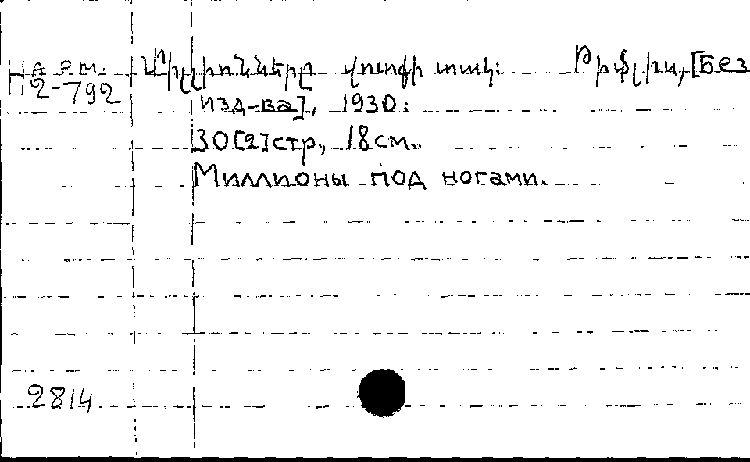 Н Арм. Միլիոնները վոտքի տակ: Թիֆլիս, [Без
2-792 изд-ва], 1930.
30[2]стр, 18см.
Миллионы под ногами.
2814